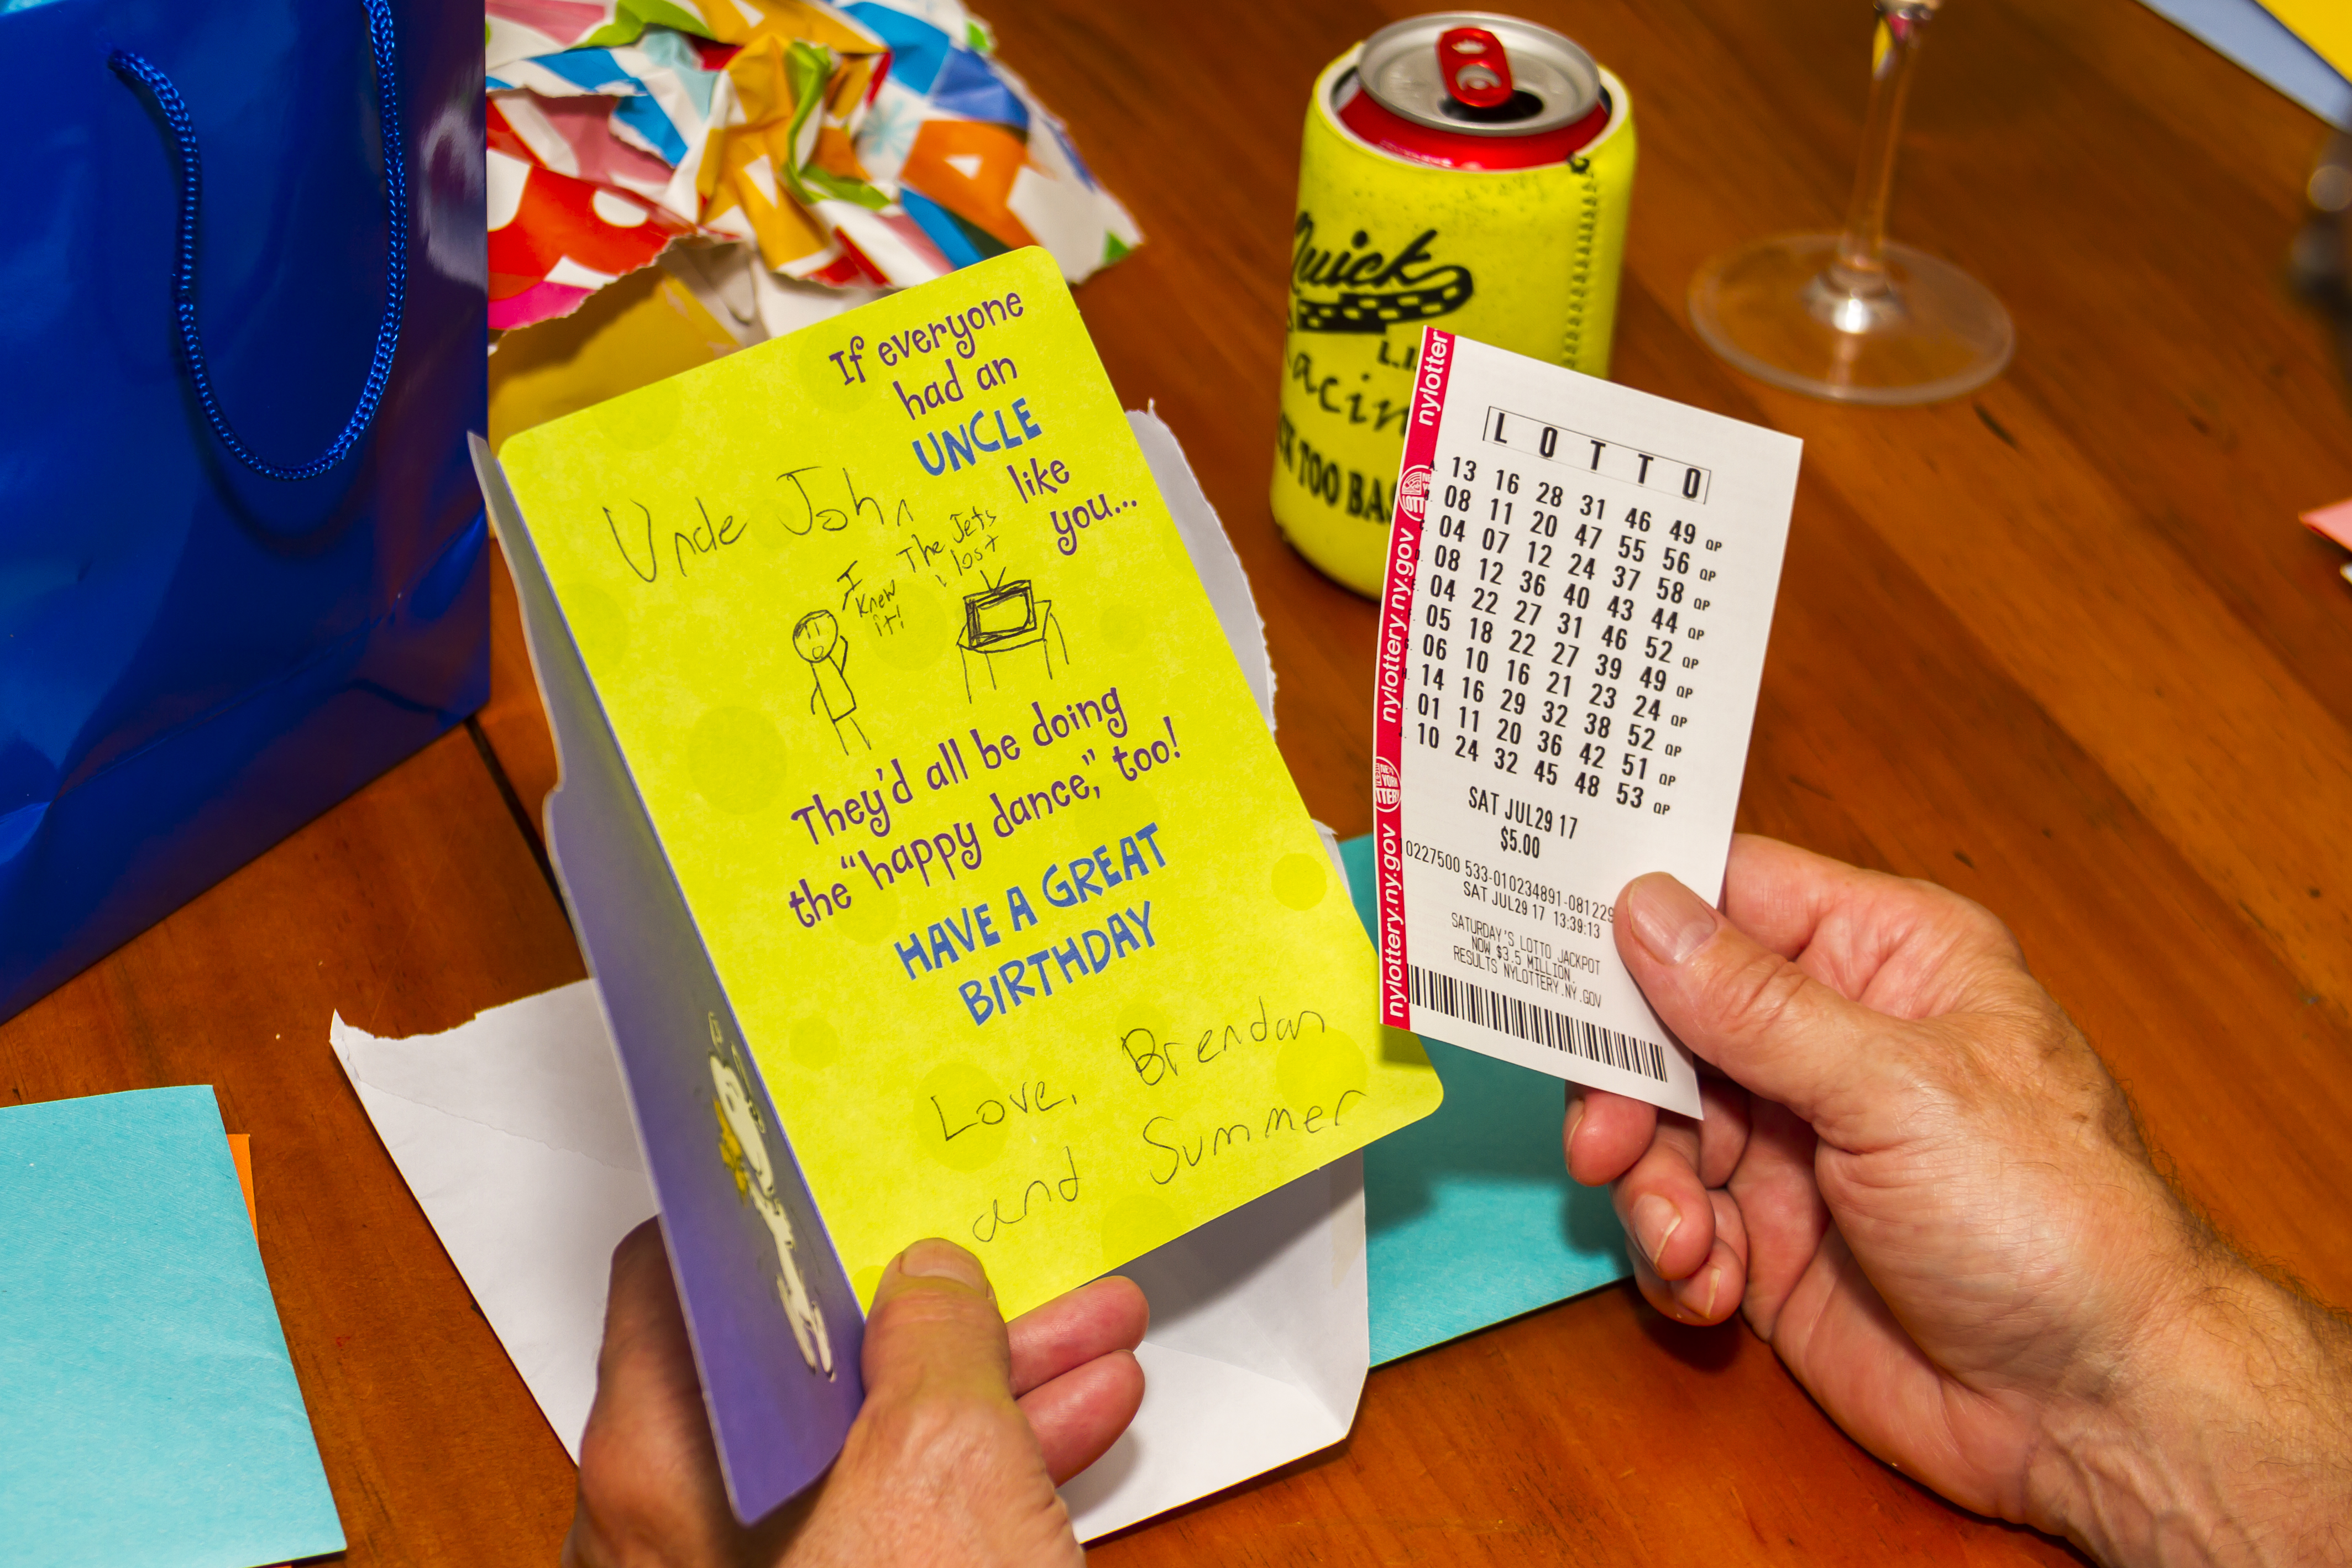 If everyone
had an
UNCLE
like
you...
Uncle John
I
knew
it!
The Jets
lost
They'd all be doing
the "happy dance," too!
HAVE A GREAT
BIRTHDAY
Love, Brendan
and Summer
Quick
L.I.
TOO
nylotter
nylottery.ny.gov
nylottery.ny.gov
LOTTO
A. 13 16 28 31 46 49 QP
08 11 20 47 55 56 QP
04 07 12 24 37 58 QP
08 12 36 40 43 44 QP
04 22 27 31 46 52 QP
05 18 22 27 39 49 QP
06 10 16 21 23 24 QP
14 16 29 32 38 52 QP
01 11 20 36 42 51 QP
10 24 32 45 48 53 QP
SAT JUL29 17
$5.00
0227500 533-010234891-081229
SAT JUL29 17 13:39:13
SATURDAY'S LOTTO JACKPOT
NOW $3.5 MILLION
RESULTS NYLOTTERY.NY.GOV